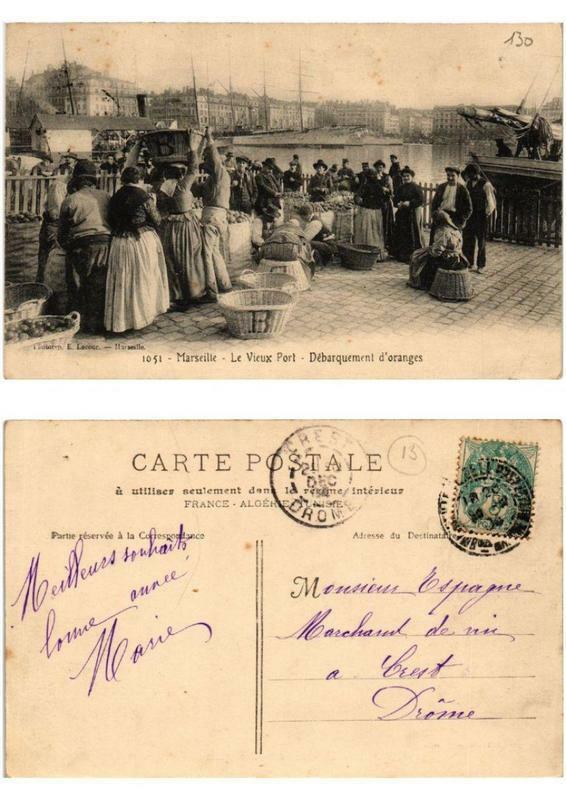 130
B
B
Phototyp. E. Lacour. — Marseille.
1051 - Marseille - Le Vieux Port - Débarquement d'oranges
13
CREST
DEC
DROME
CARTE POSTALE
à utiliser seulement dans le régime intérieur
FRANCE - ALGÉRIE - TUNISIE
Partie réservée à la Correspondance
Adresse du Destinataire
Meilleurs souhaits
bonne année
Marie
Monsieur Espagne
Marchand de vin
a Crest
Drôme